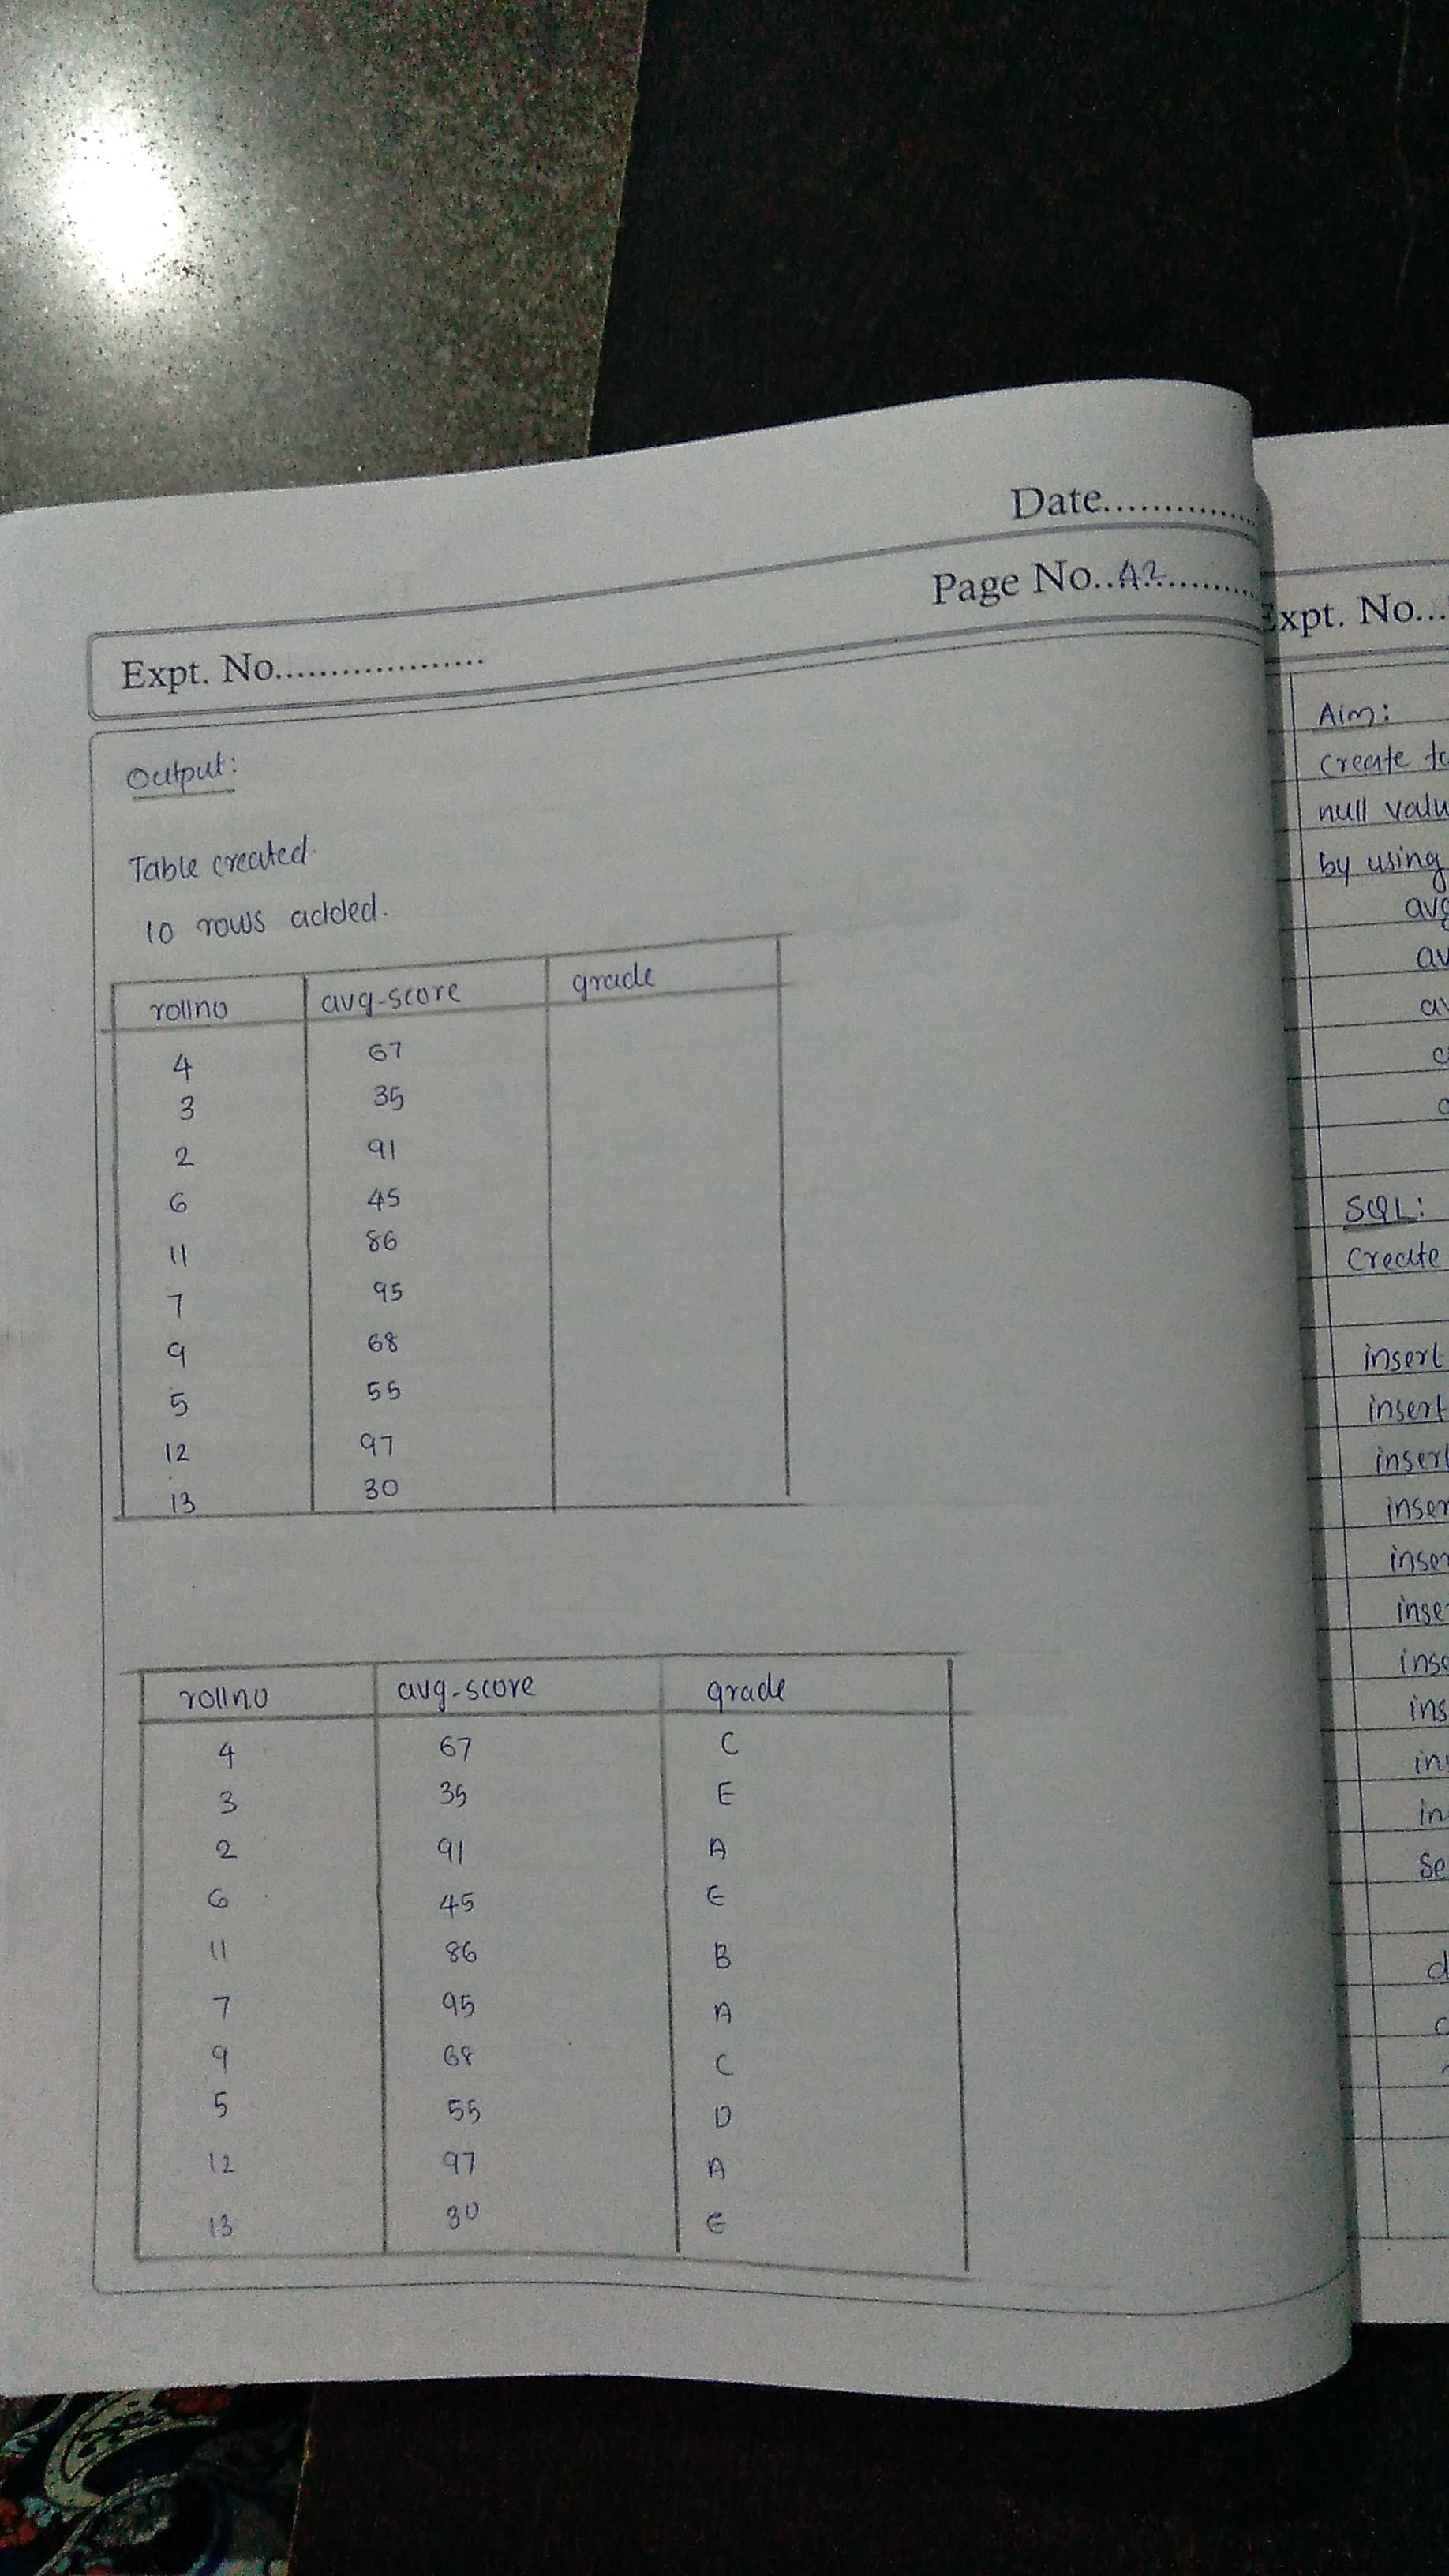 Date..............
Page No..42..........
Expt. No...................
Output:
Table created.
10 rows added.
rollno avg-score grade
4 67
3 35
2 91
6 45
11 86
7 95
9 68
5 55
12 97
13 30
rollno avg-score grade
4 67 C
3 35 E
2 91 A
6 45 E
11 86 B
7 95 A
9 68 C
5 55 D
12 97 A
13 30 E
Expt. No...
Aim:
Create
null
by using
SQL:
Create
insert
insert